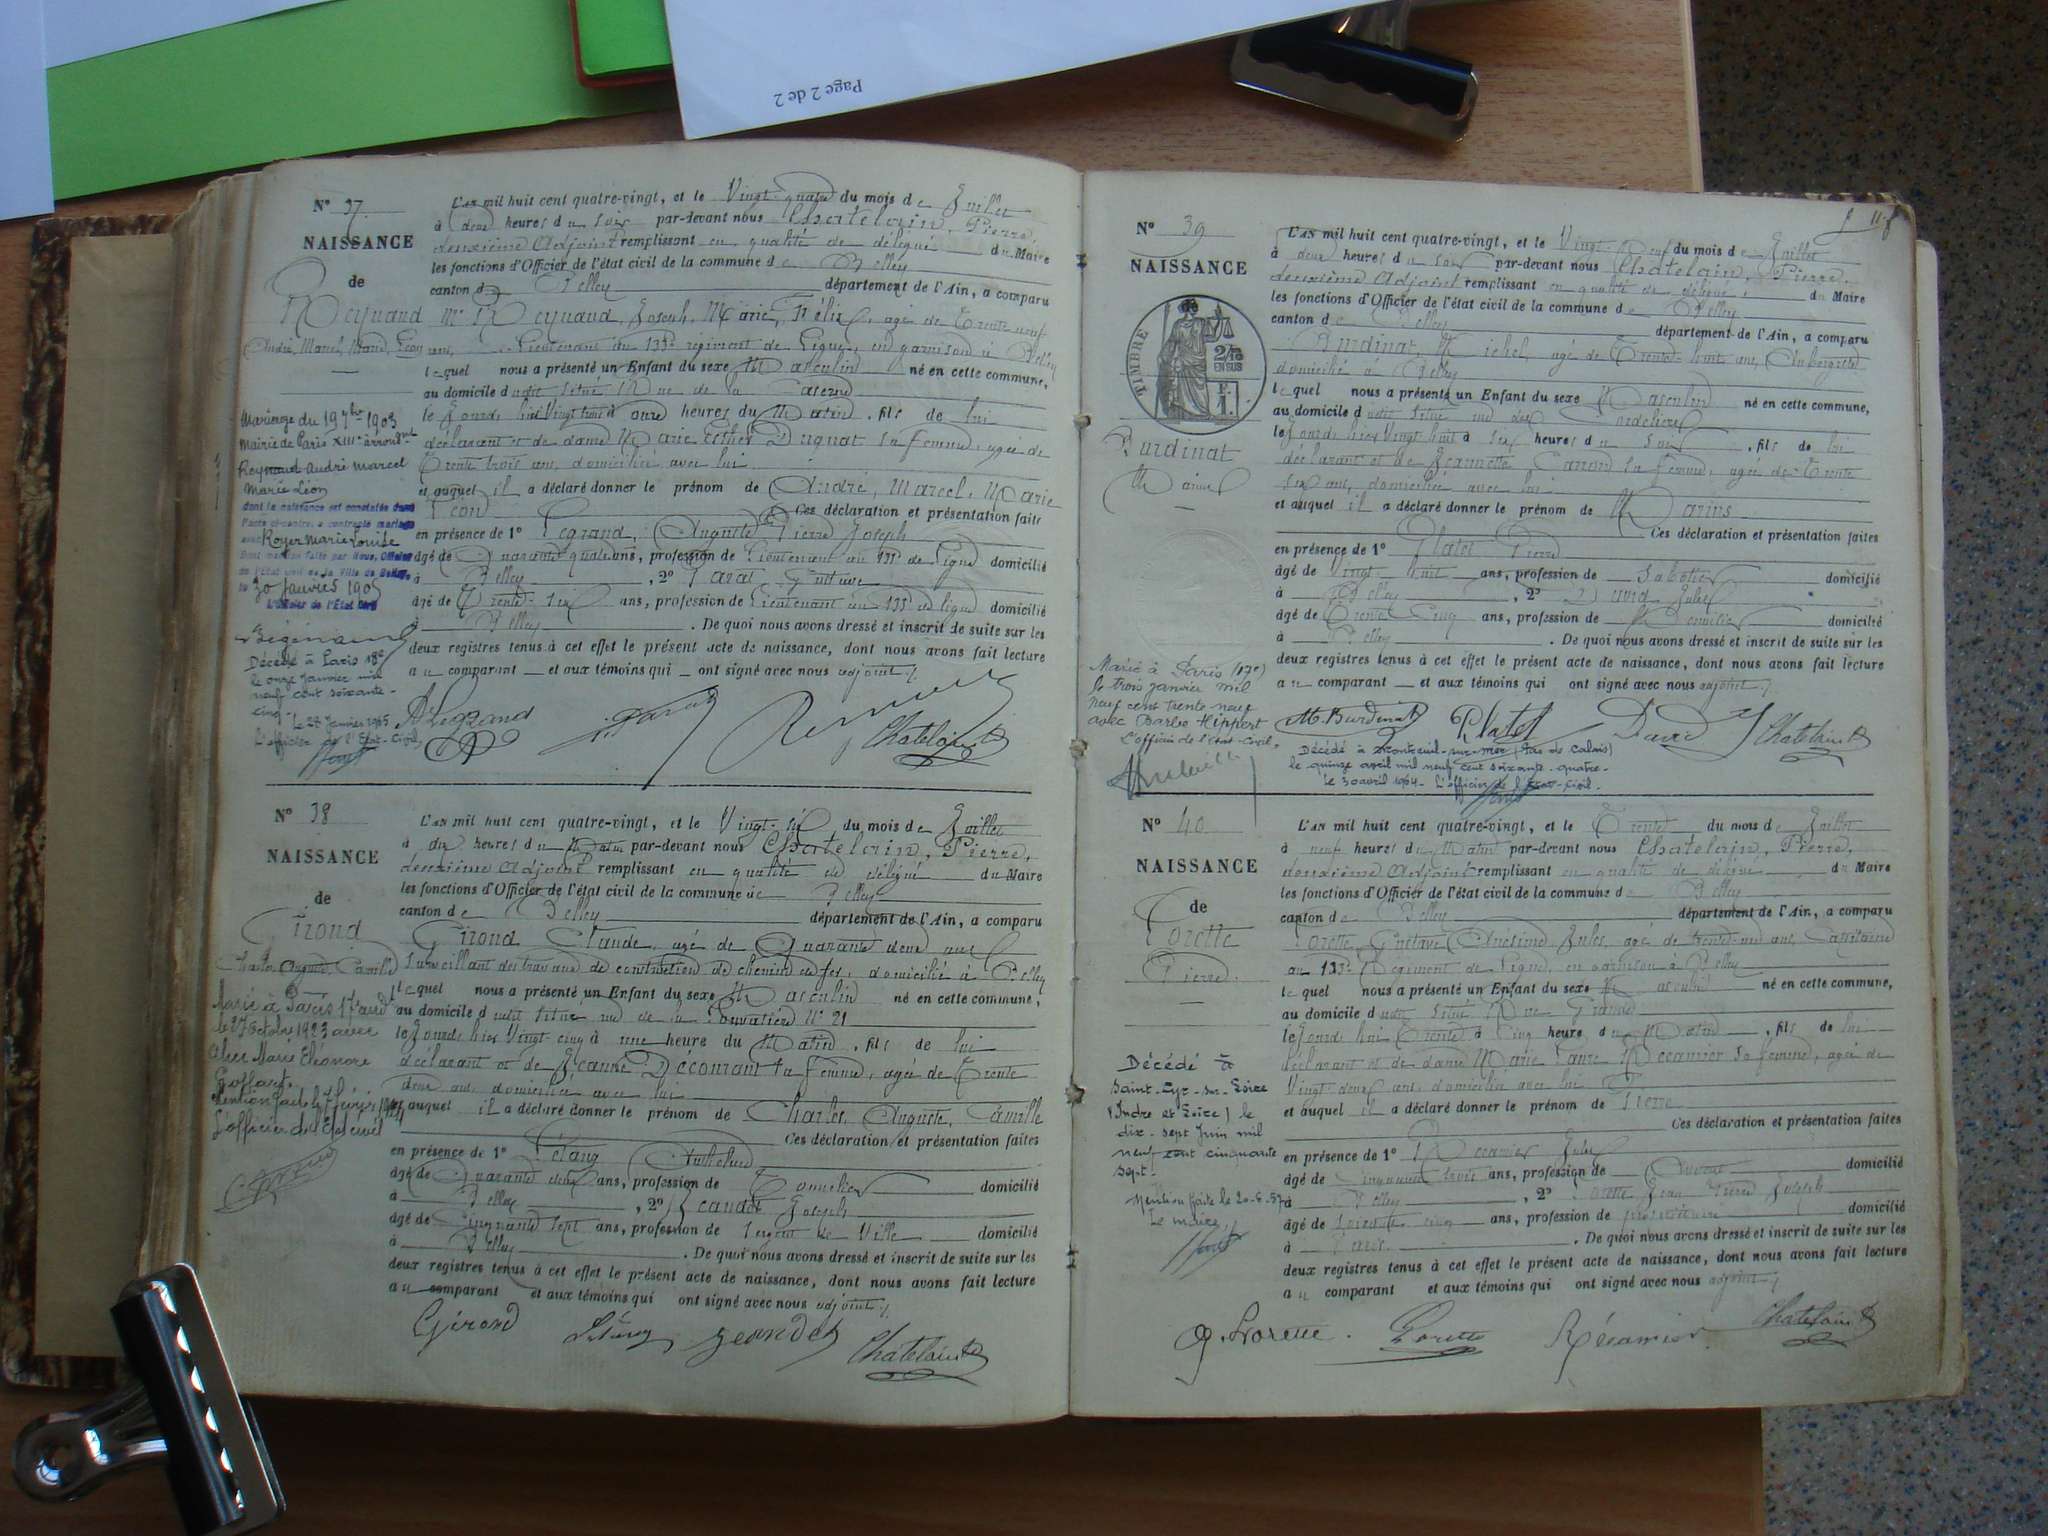 Page 2 de 2
N° 37
NAISSANCE
de
Reynaud
André, Marcel, Marie, Léon
Mariage du 19 7bre 1903
Mairie de Paris XIIIe arrondt
Reynaud André Marcel
Marie Léon
dont la naissance est constatée dans
l'acte ci-contre a contracté mariage
avec Royer Marie Louise
Dont mention faite par Nous, Officier
de l'Etat civil de la Ville de Belley
le 30 Janvier 1905
L'Officier de l'Etat Civil
Décédé à Paris 18e
le onze Janvier mil
neuf cent soixante-
cinq. Le 28 Janvier 1965
L'officier de l'Etat-Civil,
L'AN mil huit cent quatre-vingt, et le Vingt-quatre du mois de Juillet
à deux heures du soir par-devant nous Chatelain, Pierre,
deuxième Adjoint remplissant en qualité de délégué du Maire
les fonctions d'Officier de l'état civil de la commune de Belley
canton de Belley département de l'Ain, a comparu
Mr Reynaud, Joseph, Marie, Félix, agé de Trente neuf
ans, Lieutenant au 133e régiment de Ligne, en garnison à Belley
lequel nous a présenté un Enfant du sexe Masculin né en cette commune,
au domicile dudit situé Rue de la Caserne
le Jourd'hier Vingt trois à onze heures du Matin, fils de lui
déclarant et de dame Marie Esther Dugnat sa femme, agée de
Trente trois ans, domiciliée avec lui
et auquel il a déclaré donner le prénom de André, Marcel, Marie
Léon Ces déclaration et présentation faites
en présence de 1° Legrand, Auguste Pierre Joseph
âgé de Quarante quatre ans, profession de Lieutenant au 133e de Ligne domicilié
à Belley, 2°
âgé de Trente-six ans, profession de Lieutenant au 133e de ligne domicilié
à Belley. De quoi nous avons dressé et inscrit de suite sur les
deux registres tenus à cet effet le présent acte de naissance, dont nous avons fait lecture
au comparant et aux témoins qui ont signé avec nous adjoint ./.
A Legrand
Chatelain
N° 38
NAISSANCE
de
Girond
Charles, Auguste, Camille
Marié à Paris 17e arrd
le 27 octobre 1923 avec
Alice Marie Eléonore
Goffart.
L'officier de l'Etat civil
L'AN mil huit cent quatre-vingt, et le Vingt-six du mois de Juillet
à dix heures du Matin par-devant nous Chatelain, Pierre,
deuxième Adjoint remplissant en qualité de délégué du Maire
les fonctions d'Officier de l'état civil de la commune de Belley
canton de Belley département de l'Ain, a comparu
Girond Claude, agé de Quarante deux ans
Surveillant des travaux de construction de chemin de fer, domicilié à Belley
lequel nous a présenté un Enfant du sexe Masculin né en cette commune,
au domicile dudit situé rue de la N° 21
le Jourd'hier Vingt-cinq à une heure du Matin, fils de lui
déclarant et de Jeanne Décourant sa femme, agée de Trente
deux ans, domiciliée avec lui
et auquel il a déclaré donner le prénom de Charles, Auguste, Camille
Ces déclaration et présentation faites
en présence de 1° Létang Anthelme
âgé de Quarante deux ans, profession de Tonnelier domicilié
à Belley, 2° Jeandet Joseph
âgé de Cinquante sept ans, profession de Sergent de Ville domicilié
à Belley. De quoi nous avons dressé et inscrit de suite sur les
deux registres tenus à cet effet le présent acte de naissance, dont nous avons fait lecture
au comparant et aux témoins qui ont signé avec nous adjoint ./.
Girond Létang Jeandet Chatelain
N° 39
NAISSANCE
TIMBRE
2/10
EN SUS
Burdinat
Marius
Marié à Paris (17e)
le trois janvier mil
neuf cent trente neuf
avec Barles Hippert
L'officier de l'état-civil,
L'AN mil huit cent quatre-vingt, et le Vingt-Neuf du mois de Juillet
à deux heures du soir par-devant nous Chatelain, Pierre,
deuxième Adjoint remplissant en qualité de délégué, du Maire
les fonctions d'Officier de l'état civil de la commune de Belley
canton de Belley département de l'Ain, a comparu
Burdinat, Michel, agé de Trente-huit ans, Aubergiste
domicilié à Belley
lequel nous a présenté un Enfant du sexe Masculin né en cette commune,
au domicile dudit situé rue des Cordeliers
le Jourd'hier Vingt huit à six heures du soir, fils de lui
déclarant et de Jeannette Caron sa femme, agée de Trente
six ans, domiciliée avec lui
et auquel il a déclaré donner le prénom de Marius
Ces déclaration et présentation faites
en présence de 1° Platel Pierre
âgé de Vingt-huit ans, profession de Sabotier domicilié
à Belley, 2° David Jules
âgé de Trente Cinq ans, profession de domicilié
à Belley. De quoi nous avons dressé et inscrit de suite sur les
deux registres tenus à cet effet le présent acte de naissance, dont nous avons fait lecture
au comparant et aux témoins qui ont signé avec nous adjoint ./.
M. Burdinat Platel David Chatelain
Décédé à Montreuil-sur-Mer (Pas de Calais)
le quinze avril mil neuf cent soixante-quatre-
Le 30 avril 1964- L'officier de l'Etat-Civil.
N° 40
NAISSANCE
de
Lorette
Pierre.
Décédé à
Saint-Cyr-sur-Loire
(Indre et Loire) le
dix-sept Juin mil
neuf cent cinquante
sept-
Mention faite le 20-6-57
Le maire,
L'AN mil huit cent quatre-vingt, et le Trente du mois de Juillet
à neuf heures du Matin par-devant nous Chatelain, Pierre,
deuxième Adjoint remplissant en qualité de délégué du Maire
les fonctions d'Officier de l'état civil de la commune de Belley
canton de Belley département de l'Ain, a comparu
Lorette, Gustave Onésime Jules, agé de trente-un ans, Capitaine
au 133e Régiment de Ligne, en garnison à Belley
lequel nous a présenté un Enfant du sexe Masculin né en cette commune,
au domicile dudit situé Rue Grande
le Jourd'hui Trente à Cinq heure du Matin, fils de lui
déclarant et de dame Marie Laure Récamier sa femme, agée de
Vingt deux ans, domiciliée avec lui
et auquel il a déclaré donner le prénom de Pierre
Ces déclaration et présentation faites
en présence de 1° Récamier Jules
âgé de Cinquante trois ans, profession de domicilié
à Belley, 2° Lorette Jean Pierre Joseph
âgé de soixante cinq ans, profession de propriétaire domicilié
à Paris. De quoi nous avons dressé et inscrit de suite sur les
deux registres tenus à cet effet le présent acte de naissance, dont nous avons fait lecture
au comparant et aux témoins qui ont signé avec nous adjoint ./.
G. Lorette. Lorette Récamier Chatelain